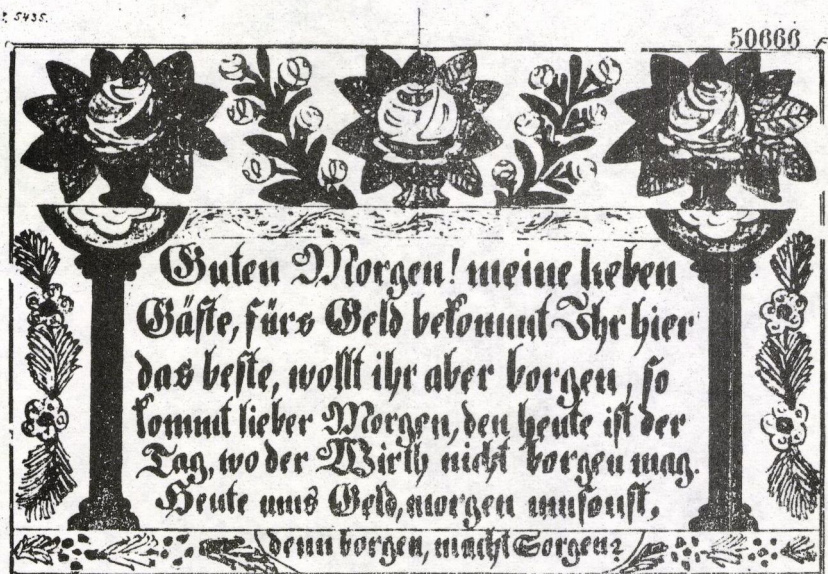 5435.
50666
Guten Morgen! meine lieben
Gäste, fürs Geld bekommt Ihr hier
das beste, wollt ihr aber borgen, so
kommt lieber Morgen, den heute ist der
Tag, wo der Wirth nicht borgen mag.
Heute ums Geld, morgen umsonst,
denn borgen, macht Sorgen